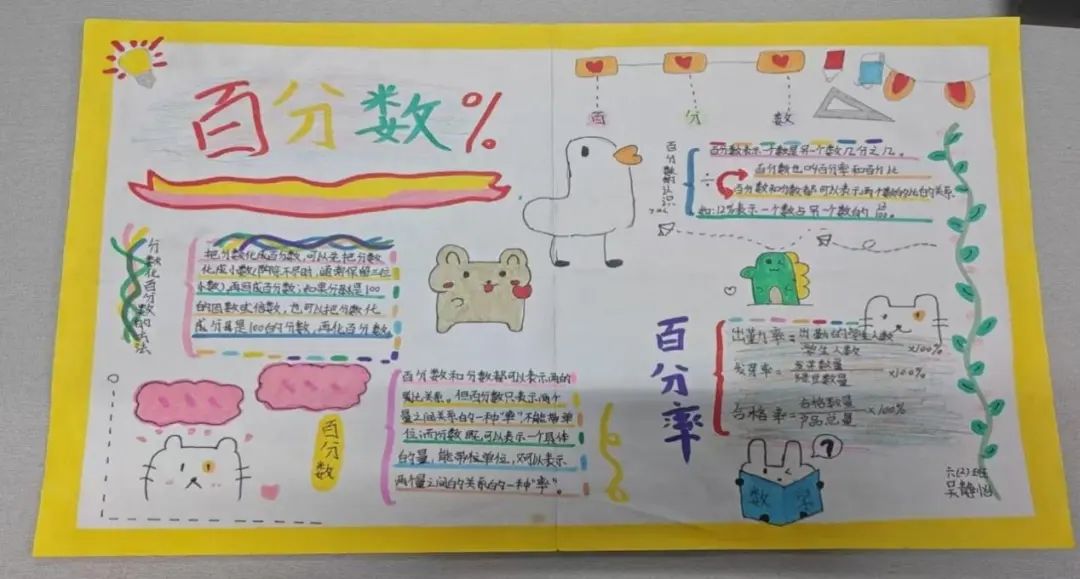 百分数%
百分数
百分数的认识
百分数表示一个数是另一个数几分之几。
百分数也叫百分率和百分比
百分数和分数都可以表示两个数的比的关系
如:12%表示一个数与另一个数的12/100。
分数化百分数的方法
把分数化成百分数,可以先把分数
化成小数(除除不尽时,通常保留三位
小数),再写成百分数;如果分母是100
的因数或倍数,也可以把分数化
成分母是100的分数,再化百分数
百分数
百分数和分数都可以表示两的
比关系。但百分数只表示两个
量之间关系的一种“率”不能带单
位;而分数既可以表示一个具体
的量,能带位单位,又可以表示
两个量之间的关系的一种“率”。
百分率
出勤率=出勤的学生人数/学生人数×100%
发芽率=发芽数量/绿豆数量×100%
合格率=合格数量/产品总量×100%
?
数学
六(2)班
吴静怡